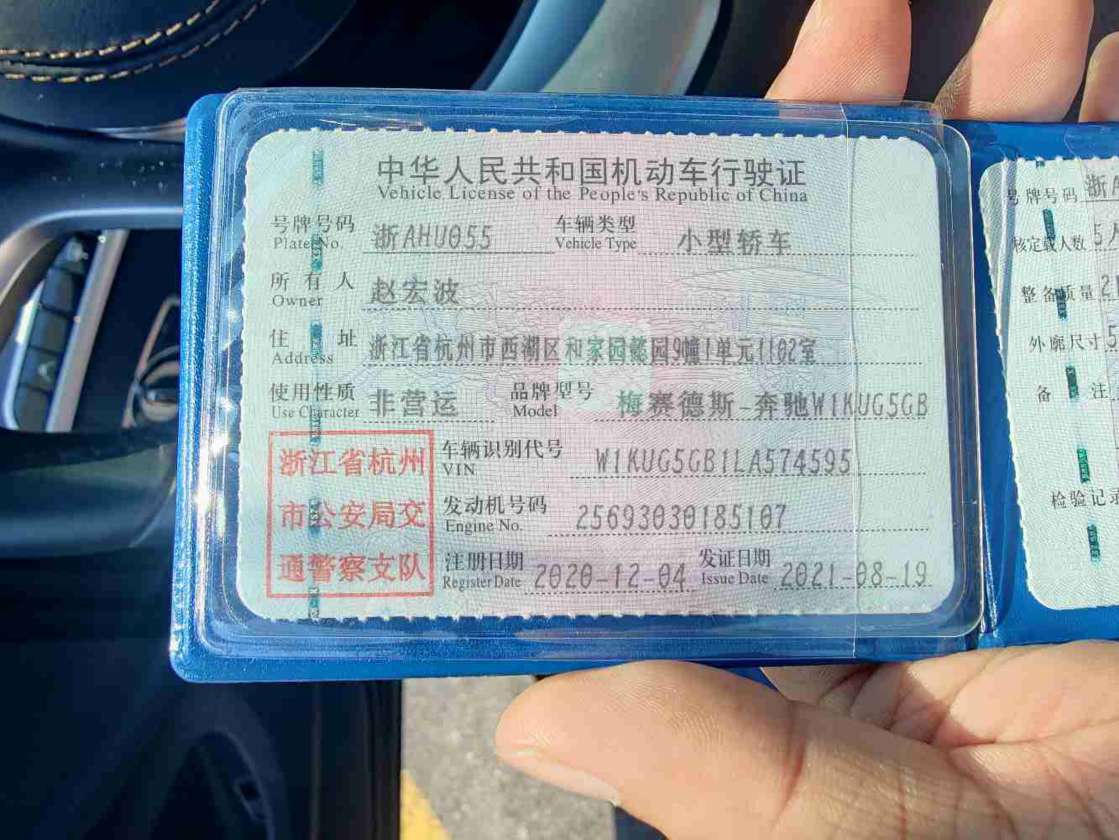 中华人民共和国机动车行驶证
Vehicle License of the People's Republic of China
号牌号码 浙AHU055 车辆类型 小型轿车
Plate No. Vehicle Type
所有人 赵宏波
Owner
住址 浙江省杭州市西湖区和家园懿园9幢1单元1102室
Address
使用性质 非营运 品牌型号 梅赛德斯-奔驰W1KUG5GB
Use Character Model
浙江省杭州
市公安局交
通警察支队
车辆识别代号 W1KUG5GB1LA574595
VIN
发动机号码 25693030185107
Engine No.
注册日期 2020-12-04 发证日期 2021-08-19
Register Date Issue Date
号牌号码 浙
核定载人数 5
整备质量 2
外廓尺寸
备注
检验记